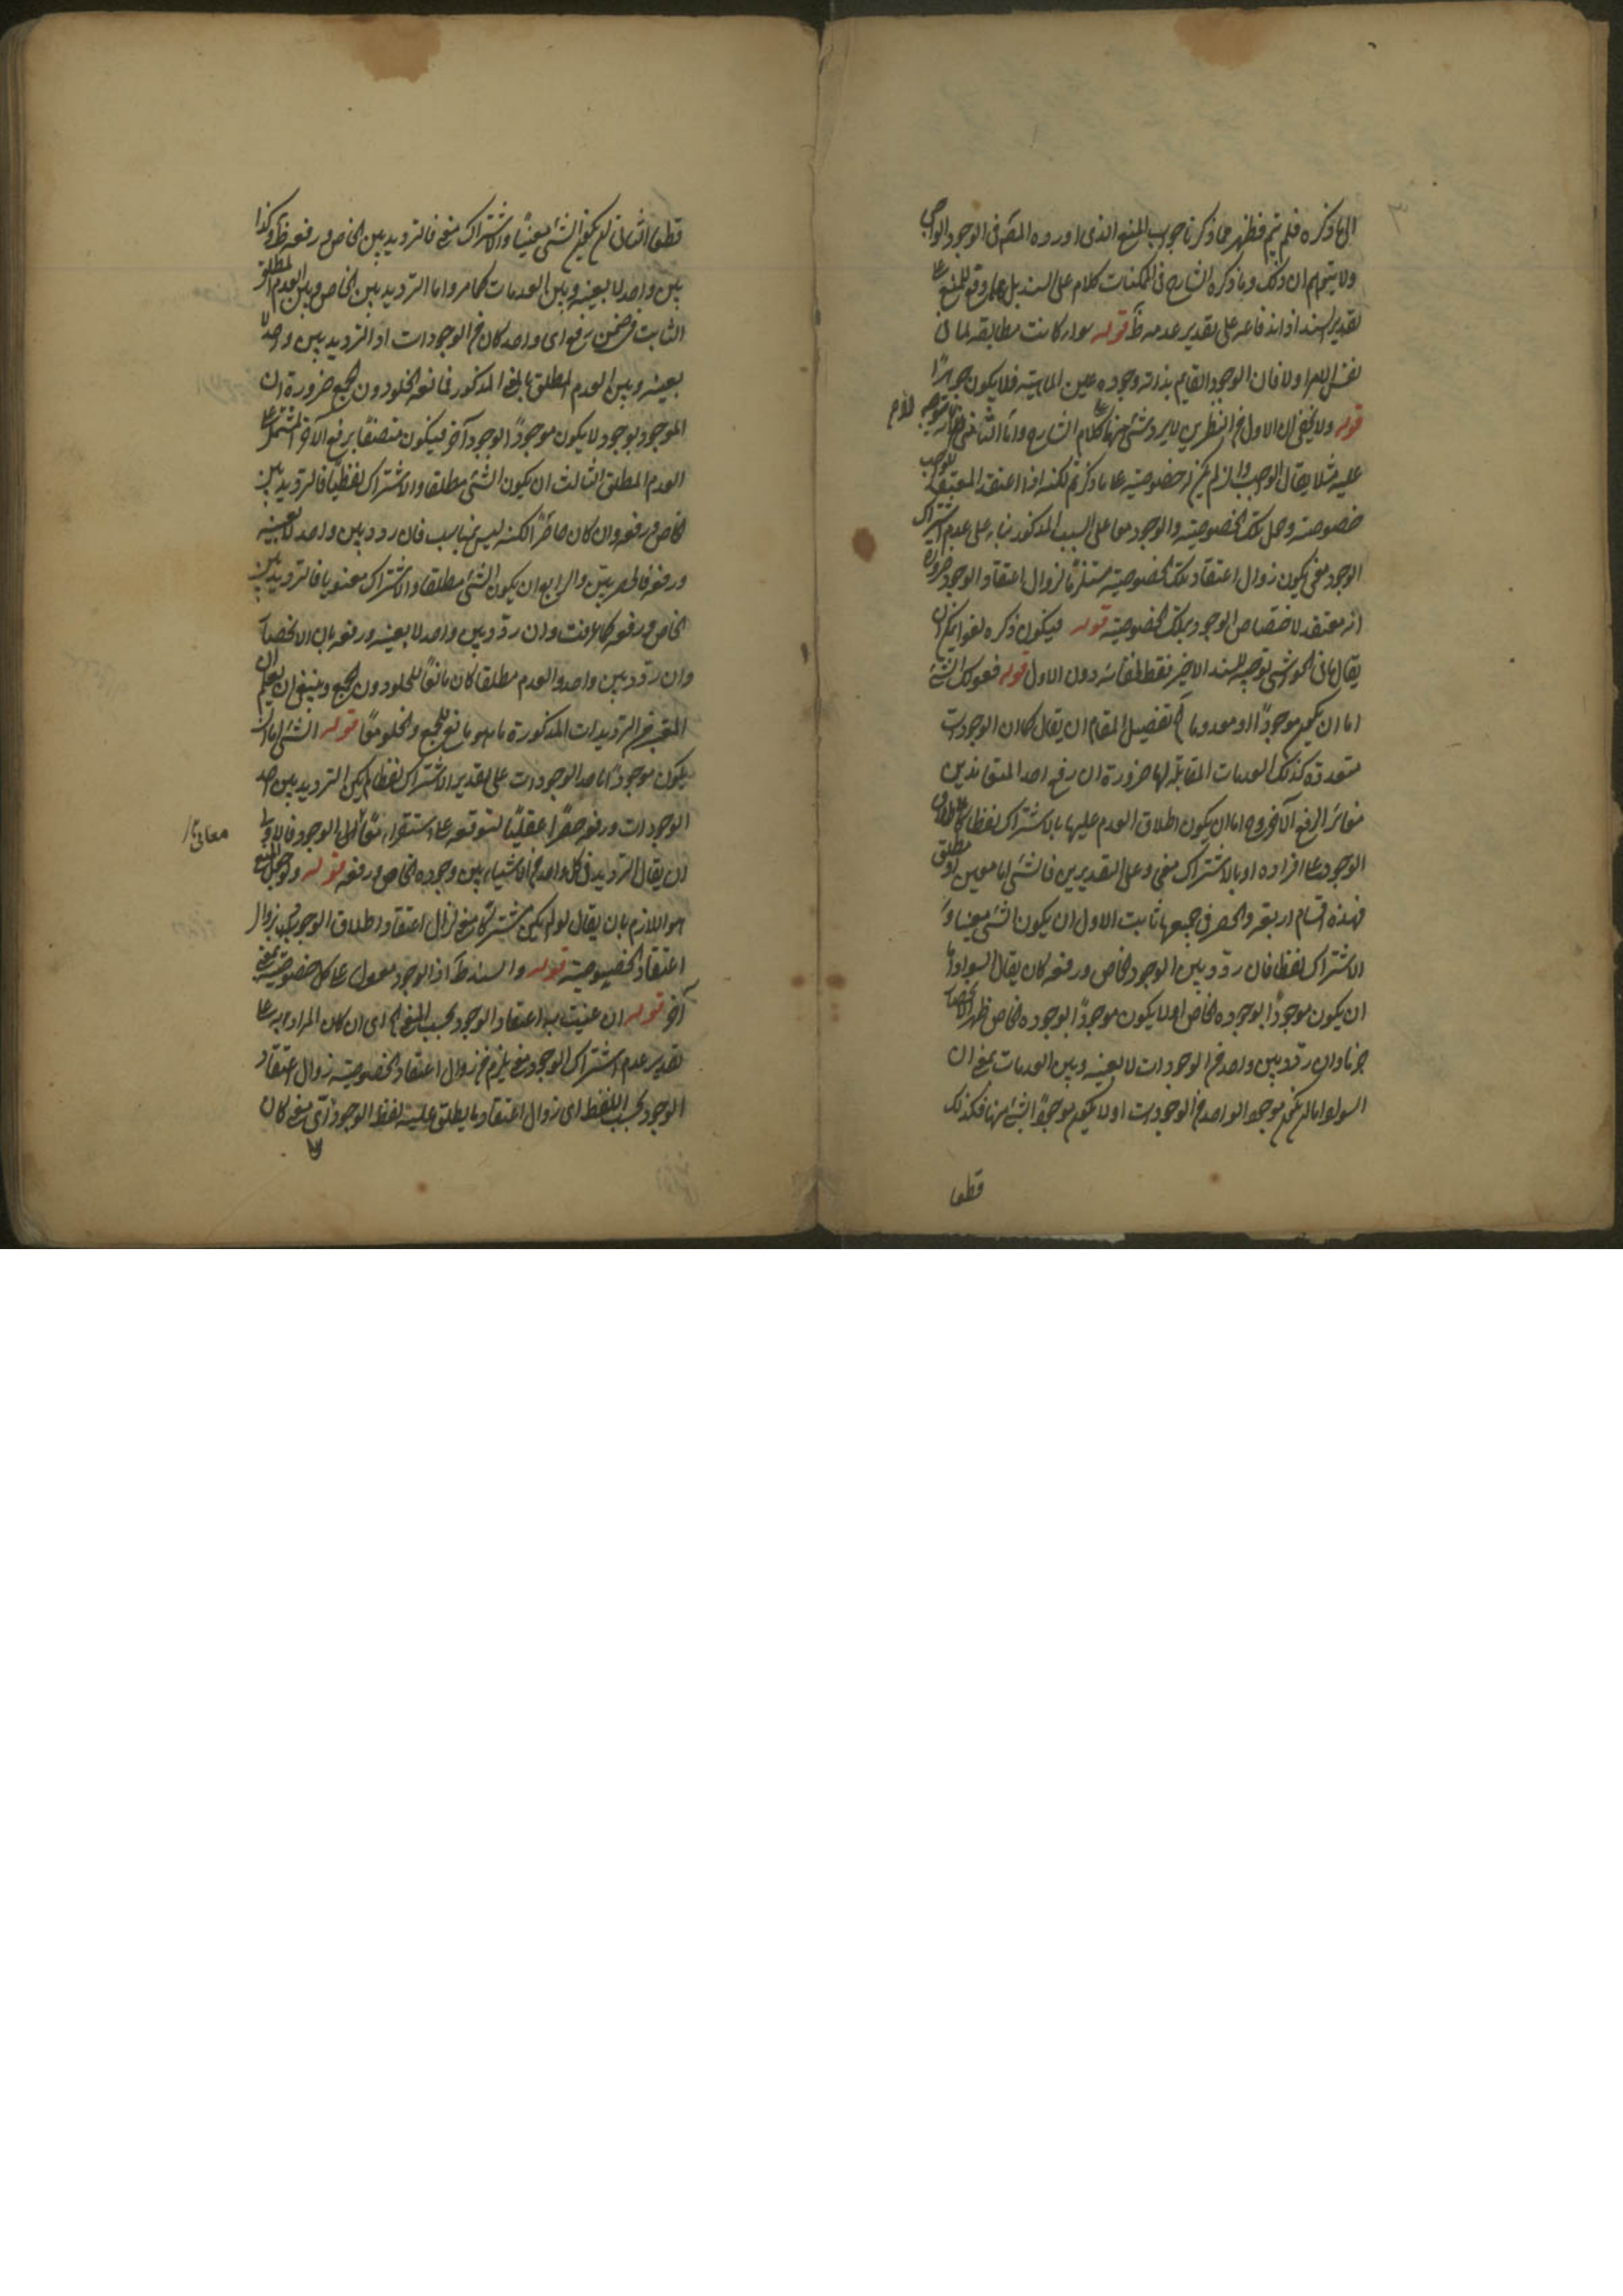 الى ما ذكره فلم يتم فظهر مما ذكرنا جواب المنع الذى اورده المصَ فى الوجود الواجب
ولا يتوهم ان ذلك وما ذكره الشارح فى الممكنات كلام على السند بل على وقع للمنع على
تقدير السند اذ اندفاعه على تقدير عدمه ظَ قوله سواء كانت مطابقة لما فى
نفس الامر اولا فان الوجود القايم بذاته وجوده عين الماهية فلا يكون جوهرًا
قوله ولا يخفى ان الاول من النظرين لا يرد شئ منهما على كلام الشارح واما الثانى
عليه مثلا يقال الواجب وان لم يكن له خصوصية على ما ذكرتم لكنه اذا اعتقد المعتقد
خصوصية وحمل تلك الخصوصية والوجود معا على السبب المذكور بناء على عدم اشتراك
الوجود معنى يكون زوال اعتقاد تلك الخصوصية مستلزمًا لزوال اعتقاد الوجود ضرورة
انه معتقد لاختصاص الوجود بتلك الخصوصية قوله فيكون ذكره لغوا يمكن ان
يقال ما فى الحواشى توجيه للسند الاخير فقط لخفائه دون الاول قوله فقولك الشئ
اما ان يكون موجودًا او معدوما الخ تفصيل المقام ان يقال كما ان الوجودات
متعددة كذلك العدمات المقابلة لها ضرورة ان رفع احد المتغايرين
مغائر الرفع الآخر وح اما ان يكون اطلاق العدم عليها بالاشتراك لفظا كاطلاق
الوجود على افراده او بالاشتراك معنى وعلى التقديرين فالشئ اما معين او مطلق
فهذه اقسام اربعة والحصر فى جميعها ثابت الاول ان يكون الشئ معينا و
الاشتراك لفظا فان ردد بين الوجود الخاص ورفعه كان يقال السواد اما
ان يكون موجودًا بوجوده الخاص او لا يكون موجودًا بوجوده الخاص ظهر الانحصار
جزما وان ردد بين واحد من الوجودات لا بعينه وبين العدمات بمعنى ان
السواد اما ان يكون موجودا بواحد من الوجودات او لا يكون موجودًا بشئ منها فكذلك
قطعا
قطعا الثانى ان يكون الشئ معينًا والاشتراك معنى فالترديد بين الخاص ورفعه ظَ وكذا
بين واحد لا بعينه وبين العدمات كما مر واما الترديد بين الخاص وبين العدم المطلق
الثابت فى ضمن رفع اى واحد كان من الوجودات او الترديد بين واحد لا
بعينه وبين العدم المطلق بالمعنى المذكور فمانعة الخلو دون الجمع ضرورة ان
الموجود بوجود لا يكون موجودًا بوجود آخر فيكون متصفًا برفع الآخر المشتمل على
العدم المطلق الثالث ان يكون الشئ مطلقا والاشتراك لفظيًا فالترديد بين
الخاص ورفعه وان كان حاصرًا لكنه ليس بمناسب فان ردد بين واحد لا بعينه
ورفعه فالحصر بيّن والرابع ان يكون الشئ مطلقا والاشتراك معنويا فالترديد بين
الخاص ورفعه كما عرفت وان ردّد بين واحد لا بعينه ورفعه بان الانحصار
وان ردّد بين واحد والعدم مطلقا كان مانعًا للخلو دون الجمع وينبغى ان يعلم ان
المعتبر من الترديدات المذكورة ما هو مانع للجمع والخلو معًا قوله الشئ اما ان
يكون موجودًا باحد الوجودات على تقدير الاشتراك لفظا لم يكن الترديد بين احد
الوجودات ورفعه حصرًا عقليًا لتوقفه على استقراء معًا الى الوجود فالاولى
معانى
ان يقال الترديد فى كل واحد من الاشياء بين وجوده الخاص ورفعه قوله وتوجيه المنع
هو اللازم بان يقال لو لم يكن مشتركا معنى لزال اعتقاد اطلاق الوجود بحسب زوال
اعتقاد الخصوصية قوله والسند ظَ اذ الوجود مقول على كل خصوصية بمعنى
آخر قوله ان عنيت به اعتقاد الوجود بحسب المعنى الخ اى ان كان المراد به على
تقدير عدم اشتراك الوجود معنى يلزم من زوال اعتقاد الخصوصية زوال اعتقاد
الوجود بحسب اللفظ اى زوال اعتقاد ما يطلق عليه لفظ الوجود اى معنى كان